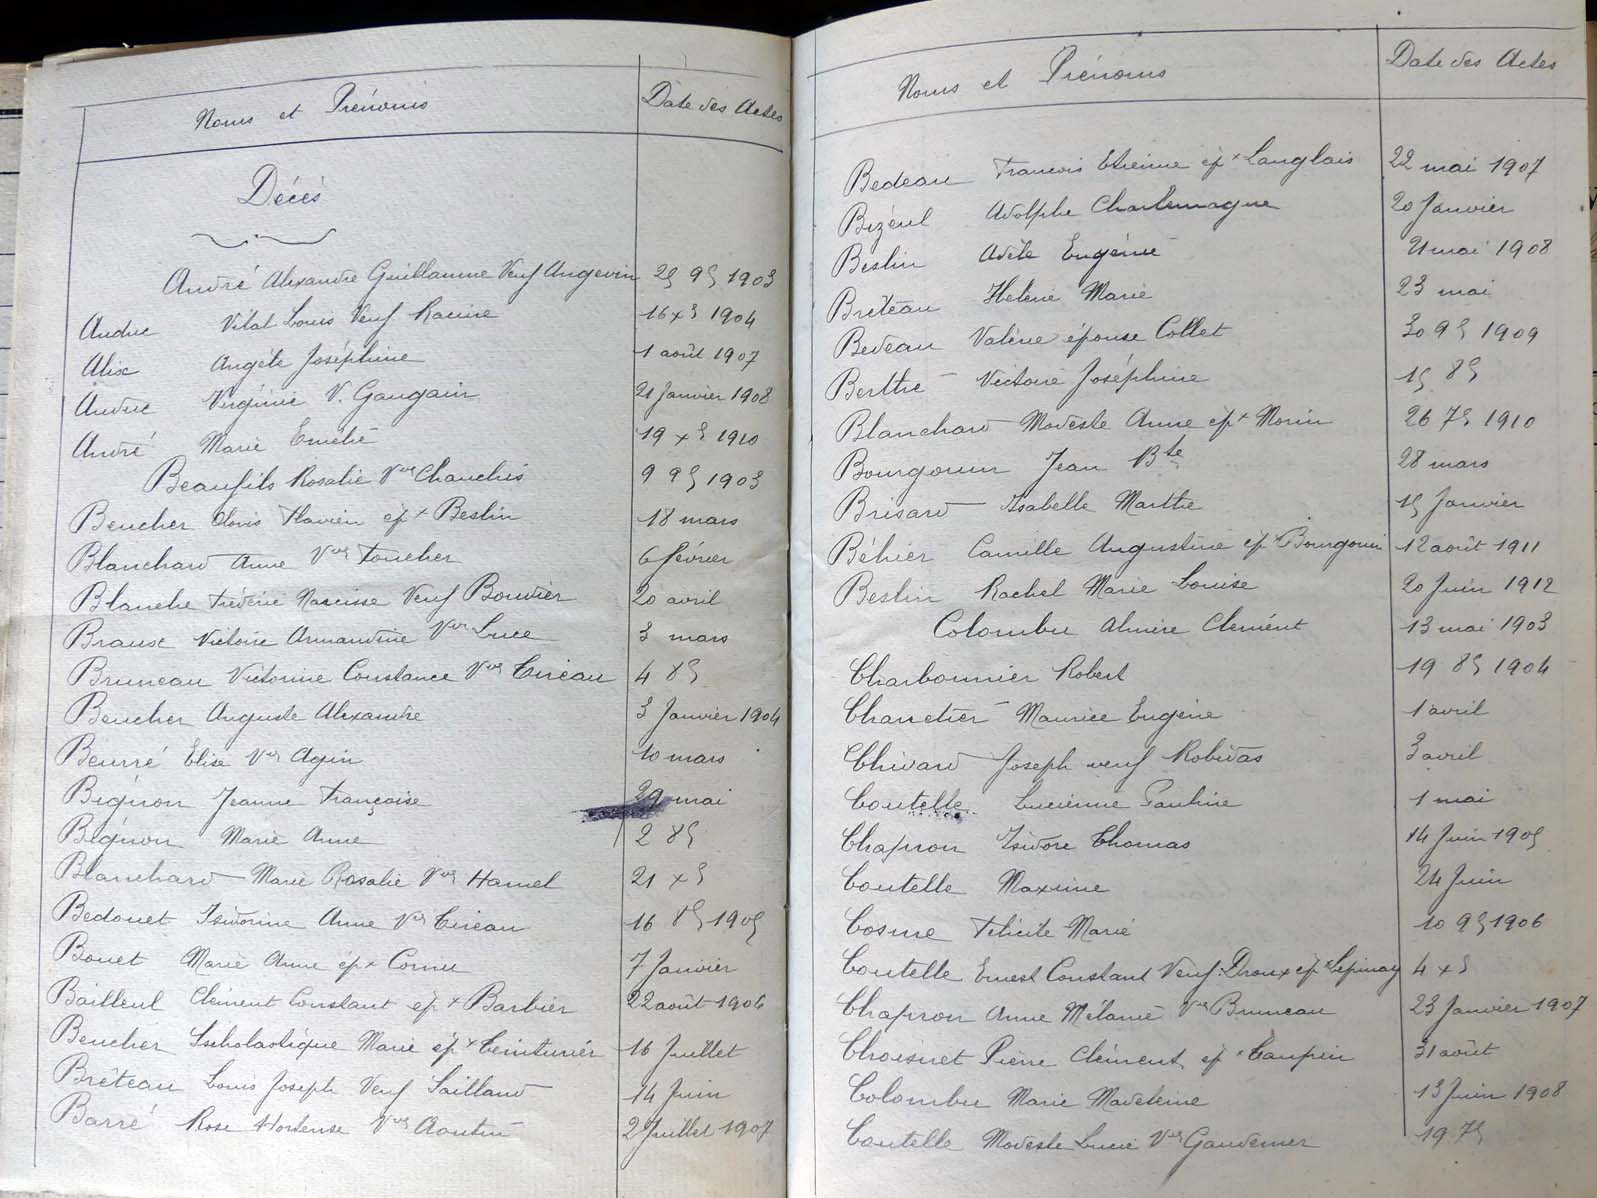 Noms et Prénoms Date des Actes
Décès
André Alexandre Guillaume Veuf Angevin 25 9bre 1903
Vital Louis Veuf Racine 16 xbre 1904
Alix Angèle Joséphine 1 août 1907
Virginie V. Gaugain 21 Janvier 1908
André Marie Emélie 19 xbre 1910
Beaufils Rosalie Vve Chauchis 9 9bre 1903
Beucher Clovis Flavien epx Beslin 18 mars
Blanchard Anne Vve Foucher 6 février
Blanche Frédéric Narcisse Veuf Bouvier 20 avril
Braux Victoire Armandine Vve Luce 3 mars
Bruneau Victorine Constance Vve Cireau 4 8bre
Beucher Auguste Alexandre 3 Janvier 1904
Beurré Elise Vve Agin 10 mars
Bignon Jeanne Françoise 29 mai
Bignon Marie Anne 2 8bre
Blanchard Marie Rosalie Vve Hamel 21 xbre
Bedouet Isidorine Anne Vve Cireau 16 8bre 1905
Bouet Marie Anne epx Cornu 7 Janvier
Bailleul Clément Constant epx Barbier 22 août 1906
Beucher Sscholastique Marie epx Ceinturier 16 Juillet
Bréteau Louis Joseph Veuf Saillard 14 Juin
Barré Rose Hortense Vve 2 Juillet 1907
Noms et Prénoms Date des Actes
Bedeau Francois Etienne epx Langlais 22 mai 1907
Bizeul Adolphe Charlemagne 20 Janvier
Beslin Adèle Eugénie mai 1908
Bréteau Hélène Marie 23 mai
Bedeau Valérie épouse Collet 30 9bre 1909
Berthé Victoire Joséphine 15 8bre
Blanchard Modeste Anne epx Morin 26 7bre 1910
Bourgouin Jean Bte 28 mars
Brisard Isabelle Marthe 15 Janvier
Béhier Camille Augustine epx Bourgouin 12 août 1911
Beslin Rachel Marie Louise 20 Juin 1912
Colombu Almire Clemént 13 mai 1903
Charbonnier Robert 19 8bre 1904
Chanetier Maurice Eugène 1 avril
Chivard Joseph veuf Robidas 3 avril
Coutelle Lucienne Pauline 1 mai
Chapron Isidore Thomas 14 Juin 1905
Coutelle Maxime 24 Juin
Cosme Félicité Marie 10 9bre 1906
Coutelle Ernest Constant Veuf: Droux epx Lepinay 4 xbre
Chapron Anne Mélanie Vve Bruneau 23 Janvier 1907
Choisnet Pierre Clément epx Taupin 31 août
Colombu Marie Madeleine 13 Juin 1908
Coutelle Modeste Lucie Vve Gaudemer 19 7bre